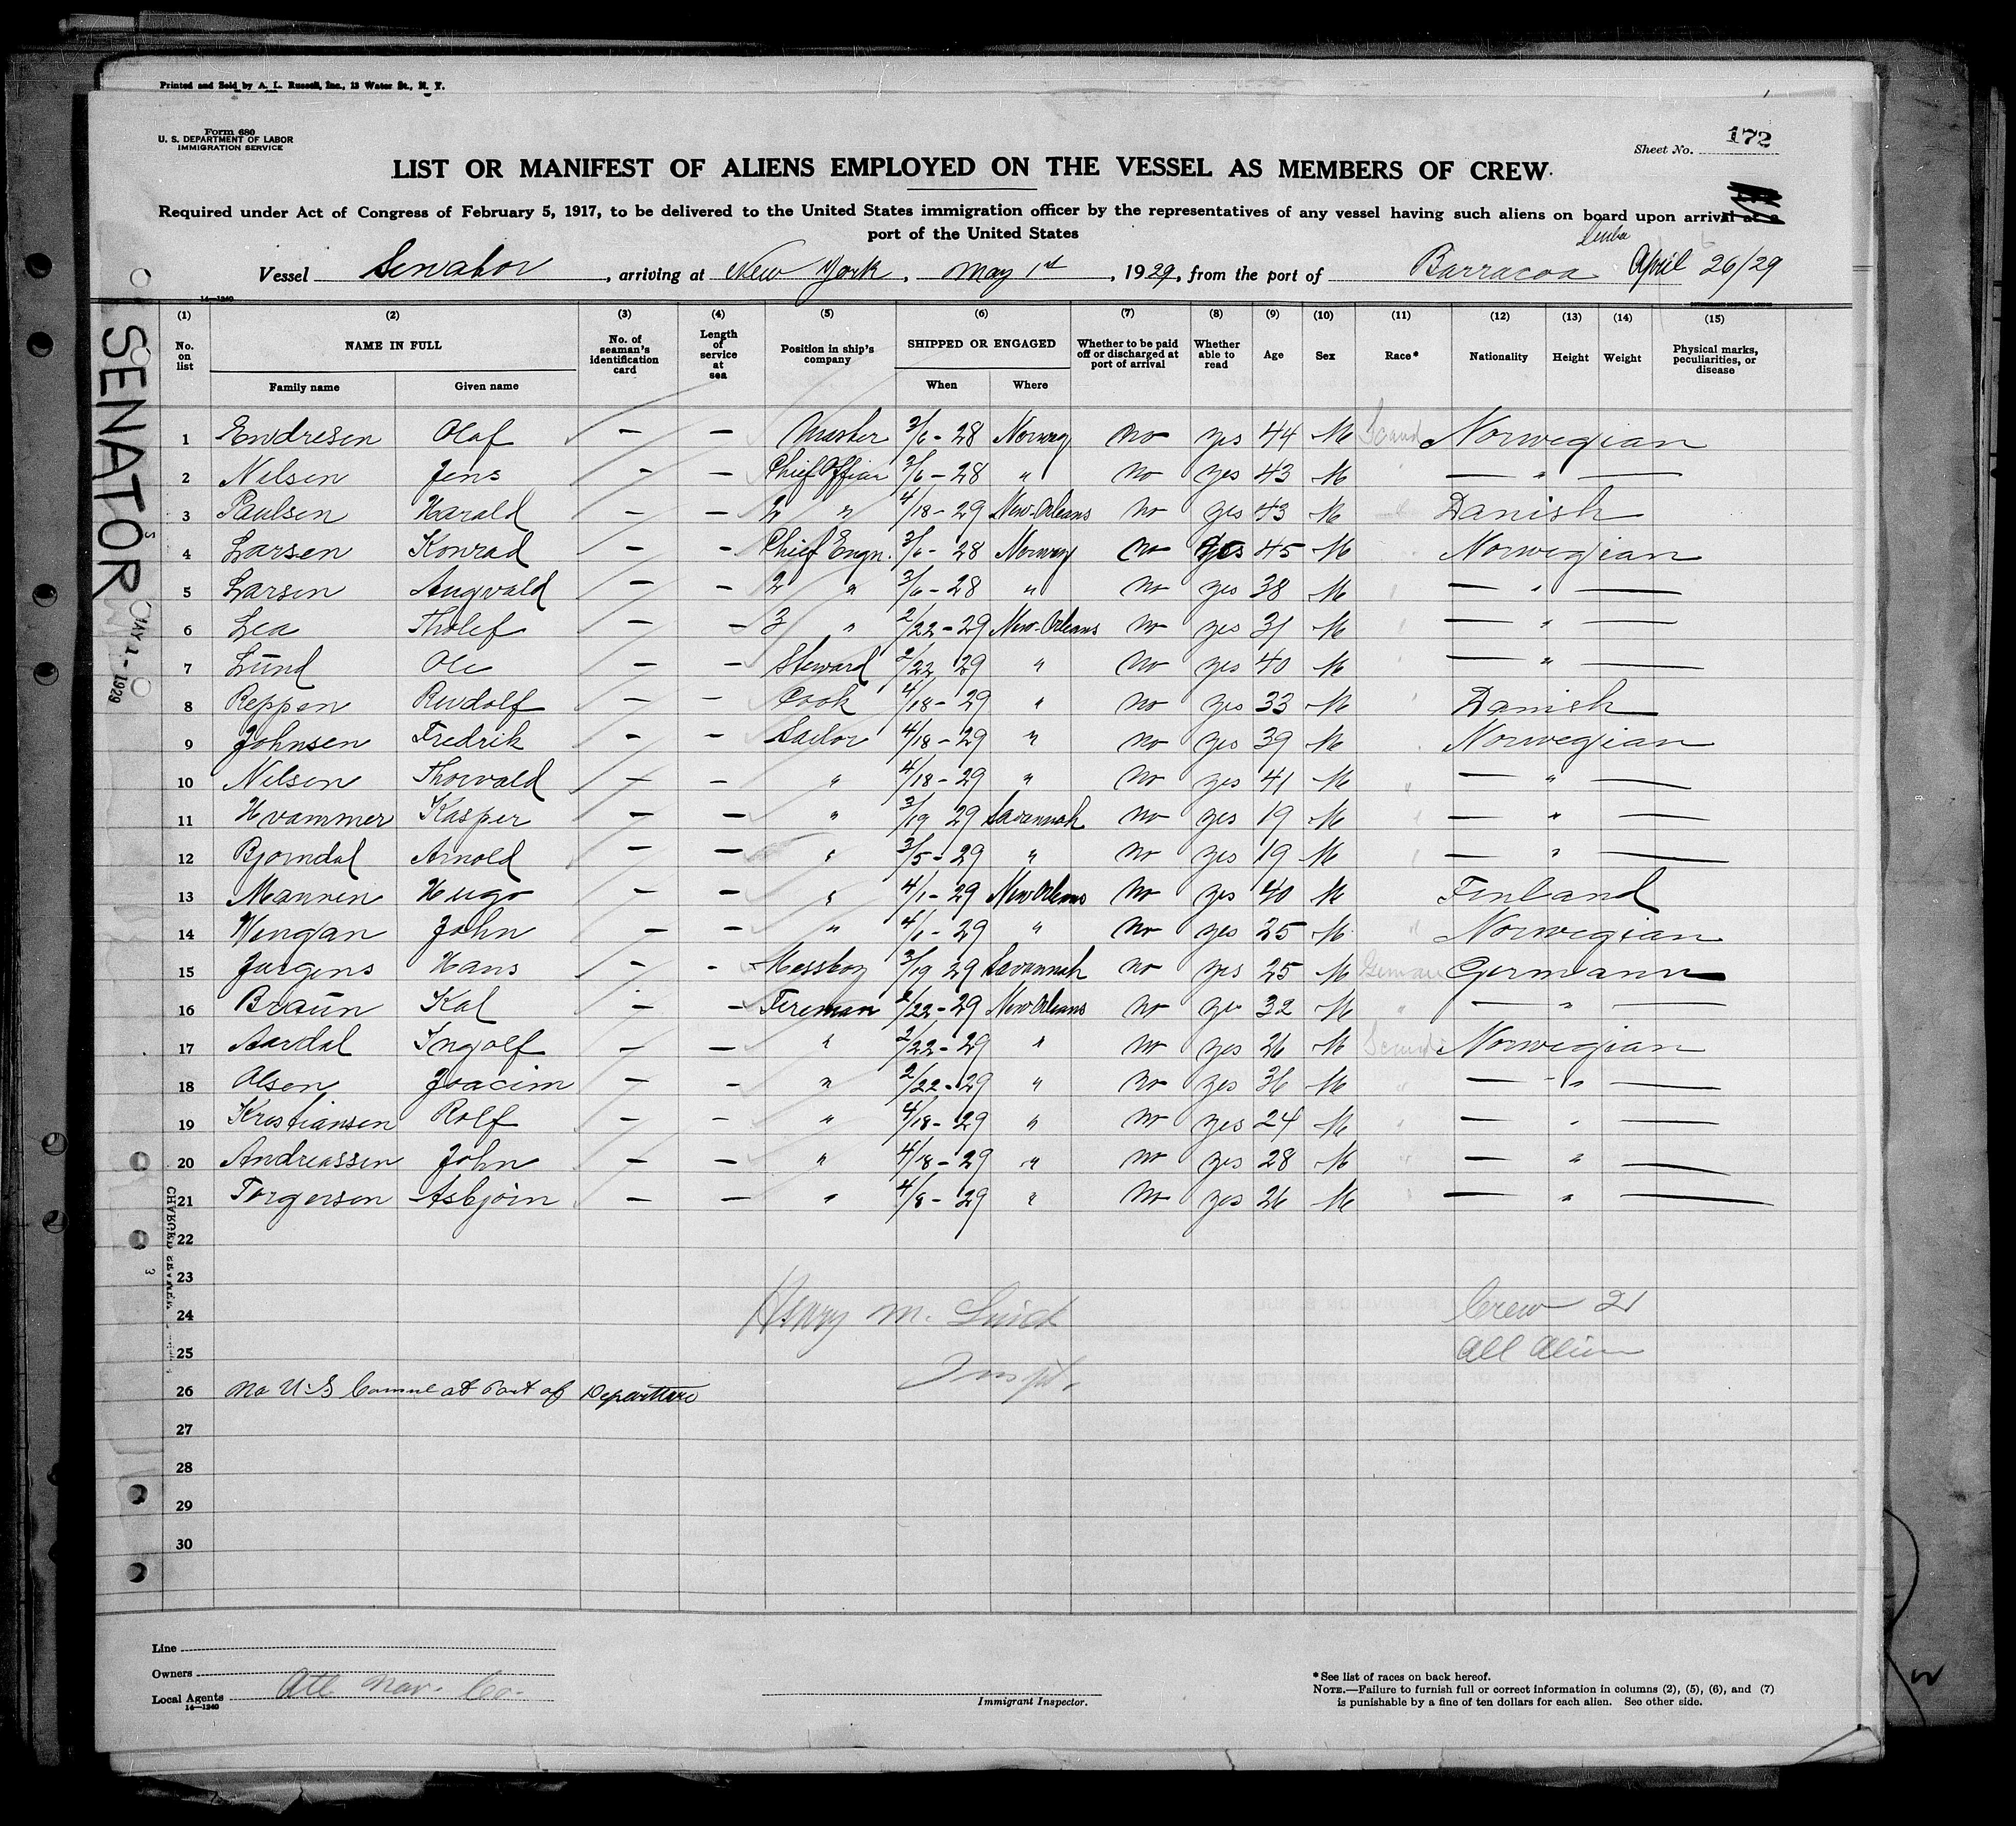 Printed and Sold by A. L. Russell, Inc., 13 Water St., N. Y.
Form 680
U. S. DEPARTMENT OF LABOR
IMMIGRATION SERVICE
Sheet No. 172
LIST OR MANIFEST OF ALIENS EMPLOYED ON THE VESSEL AS MEMBERS OF CREW
Required under Act of Congress of February 5, 1917, to be delivered to the United States immigration officer by the representatives of any vessel having such aliens on board upon arrival at a
port of the United States
Vessel Senator, arriving at New York, May 1st, 1929, from the port of Barracoa April 26/29
14—1240
SENATOR
MAY 2 - 1929
(1) (2) (3) (4) (5) (6) (7) (8) (9) (10) (11) (12) (13) (14) (15)
No. on list NAME IN FULL Family name Given name No. of seaman's identification card Length of service at sea Position in ship's company SHIPPED OR ENGAGED When Where Whether to be paid off or discharged at port of arrival Whether able to read Age Sex Race* Nationality Height Weight Physical marks, peculiarities, or disease
1 Endresen Olaf — — Master 3/6-28 Norway no yes 44 M Scand Norwegian
2 Nilsen Jens — — Chief Officer 3/6-28 " no yes 43 M " — " —
3 Paulsen Harald — — 2 " 4/18-29 New-Orleans no yes 43 M Danish
4 Larsen Konrad — — Chief Engn. 3/6-28 Norway no yes 45 M " Norwegian
5 Larsen Augvald — — 2 " 3/6-28 " no yes 38 M " — " —
6 Lea Tholef — — 3 " 2/22-29 New-Orleans no yes 31 M " — " —
7 Lund Ole — — Steward 2/22 29 " no yes 40 M " — " —
8 Reppen Rudolf — — Cook 4/18-29 " no yes 33 M " Danish
9 Johnsen Fredrik — — Sailor 4/18-29 " no yes 39 M " Norwegian
10 Nilsen Thorvald — — " 4/18-29 " no yes 41 M " — " —
11 Hvammer Kasper — — " 3/19 29 Savannah no yes 19 M " — " —
12 Bjorndal Arnold — — " 3/5-29 " no yes 19 M " — " —
13 Mannen Hugo — — " 4/1-29 New Orleans no yes 40 M Finland
14 Wengan John — — " 4/1-29 " no yes 25 M " Norwegian
15 Jurgens Hans — - Messboy 3/19 29 Savannah no yes 25 M German Germann
16 Braun Kal — — Fireman 2/22-29 New Orleans no yes 32 M " — " —
17 Aardal Ingolf — — " 2/22-29 " no yes 26 M Scandi Norwegian
18 Olsen Joacim — — " 2/22-29 " no yes 36 M " — " —
19 Kristiansen Rolf — — " 4/18-29 " no yes 24 M " — " —
20 Andreassen John — — " 4/18-29 " no yes 28 M " — " —
21 Torgersen Asbjörn — — " 4/8-29 " no yes 26 M " — " —
22
23
24 Henry M. Crew 21
25 All Alien
26 No U.S Consul at Port of Departure
27
28
29
30
Line
Owners
Local Agents Atl Nav. Co.
14—1240
Immigrant Inspector.
* See list of races on back hereof.
NOTE.—Failure to furnish full or correct information in columns (2), (5), (6), and (7)
is punishable by a fine of ten dollars for each alien. See other side.